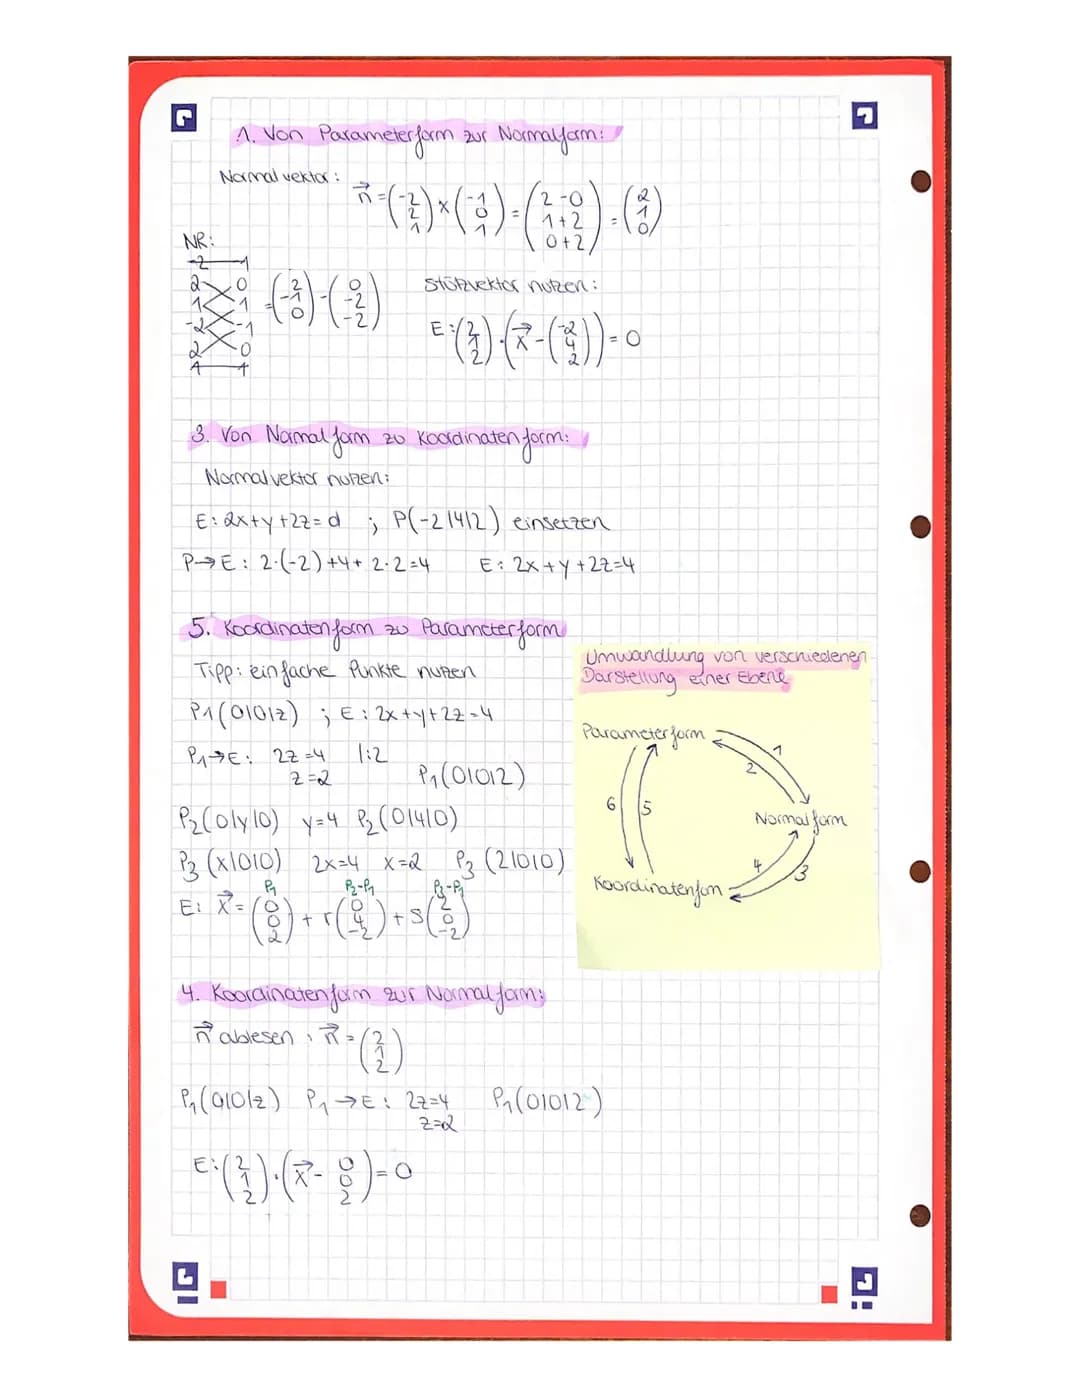 1. Von Parameterform zur Normalform:
Normalvektor:
n⃗ = (-2 2 1) × (-1 0 1) = (2-0 1+2 0+2) = (2 1 0)
NR:
-2 -1
2 0
1 1
-2 -1
2 0
1 1
= (2 -1 0) - (0 -2 -2)
Stützvektor nutzen:
E: (2 1 2) · (x⃗ - (-2 4 2)) = 0
3. Von Normalform zu Koordinatenform:
Normalvektor nutzen:
E: 2x+y+2z=d ; P(-2|4|2) einsetzen
P→E: 2·(-2)+4+2·2=4 E: 2x+y+2z=4
5. Koordinatenform zu Parameterform
Tipp: einfache Punkte nutzen
P1(0|0|z) ; E: 2x+y+2z=4
P1→E: 2z=4 |:2
z=2 P1(0|0|2)
P2(0|y|0) y=4 P2(0|4|0)
P3(x|0|0) 2x=4 x=2 P3(2|0|0)
P1 P2-P1 P3-P1
E: x⃗ = (0 0 2) + r(0 4 -2) + s(2 0 -2)
Umwandlung von verschiedenen
Darstellung einer Ebene
Parameterform
1
2
6 5
Normalform
4
3
Koordinatenform
4. Koordinatenform zur Normalform:
n⃗ ablesen, n⃗ = (2 1 2)
P1(0|0|z) P1→E: 2z=4 P1(0|0|2)
z=2
E: (2 1 2) · (x⃗ - 0 0 2) = 0